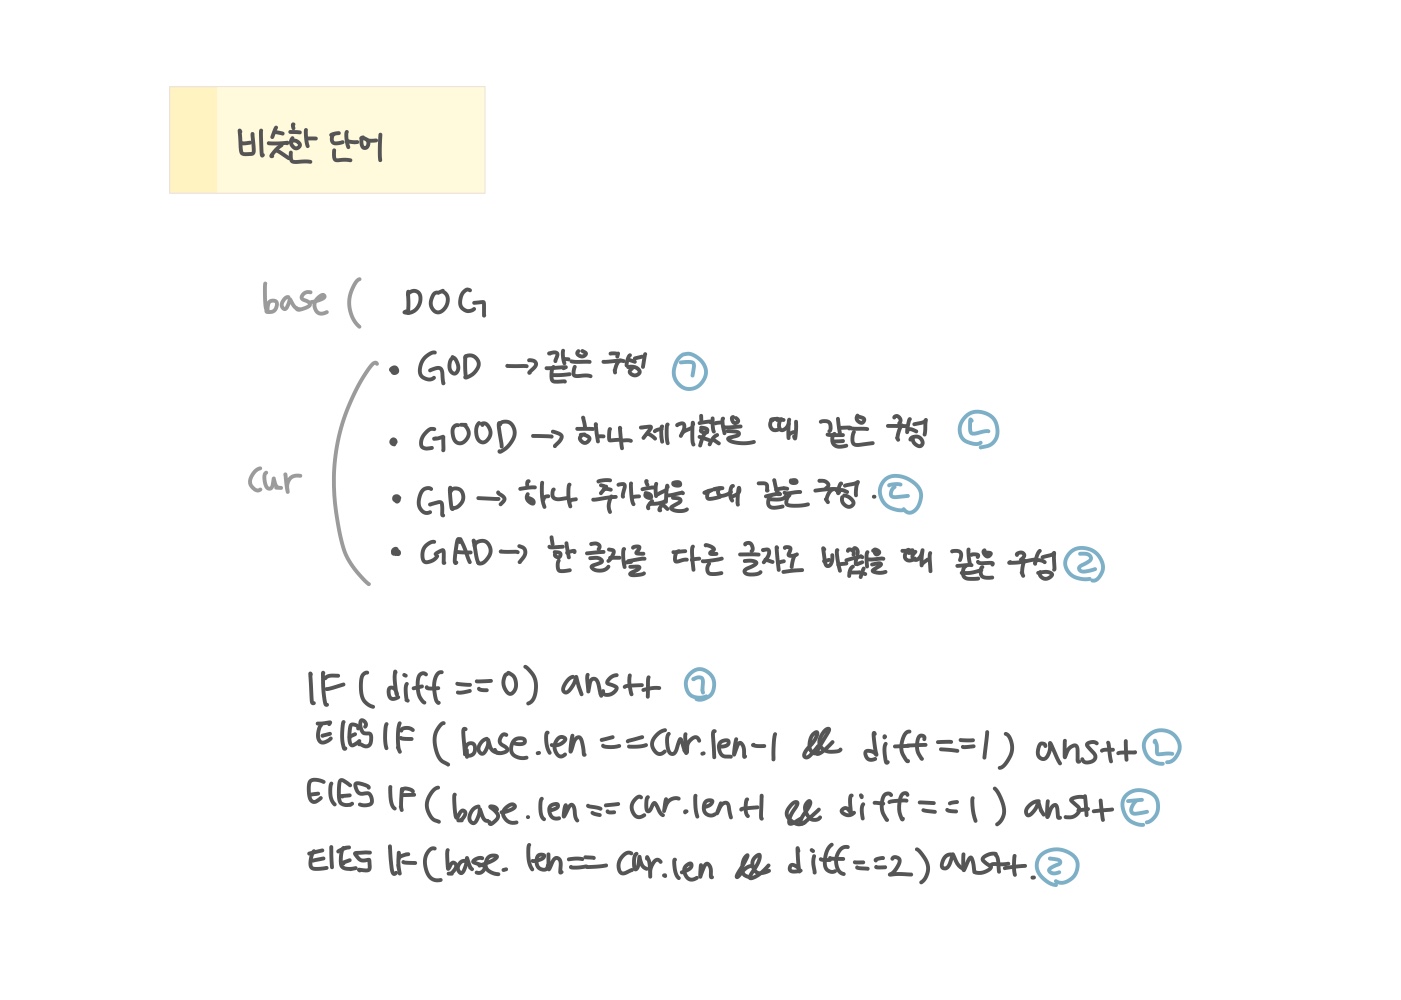 비슷한 단어
base ( DOG
• GOD → 같은 구성 ㉠
• GOOD → 하나 제거했을 때 같은 구성 ㉡
cur
• GD → 하나 추가했을 때 같은 구성. ㉢
• GAD → 한 글자를 다른 글자로 바꿨을 때 같은 구성 ㉣
IF ( diff == 0 ) ans++ ㉠
ElES IF ( base.len == cur.len-1 && diff == 1 ) ans++ ㉡
ElES IF ( base.len == cur.len+1 && diff == 1 ) ans++ ㉢
ElES IF ( base.len == cur.len && diff == 2 ) ans++. ㉣